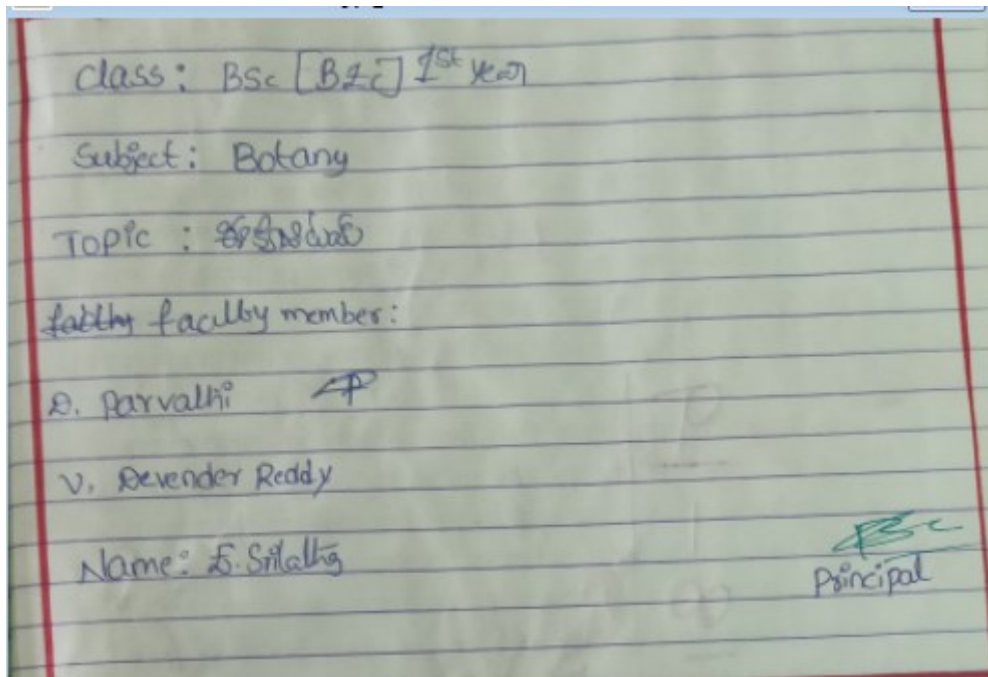 Class: BSc [BZC] 1st year
Subject: Botany
Topic :
faculty member:
D. Parvathi
V. Devender Reddy
Name: E. Srilatha
Principal